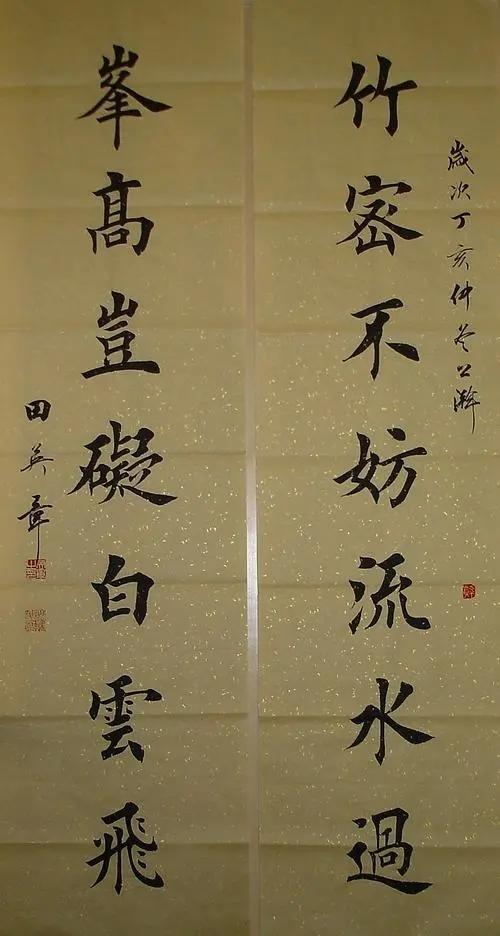 歲次丁亥仲冬上澣
竹密不妨流水過
峯髙豈礙白雲飛
田英章